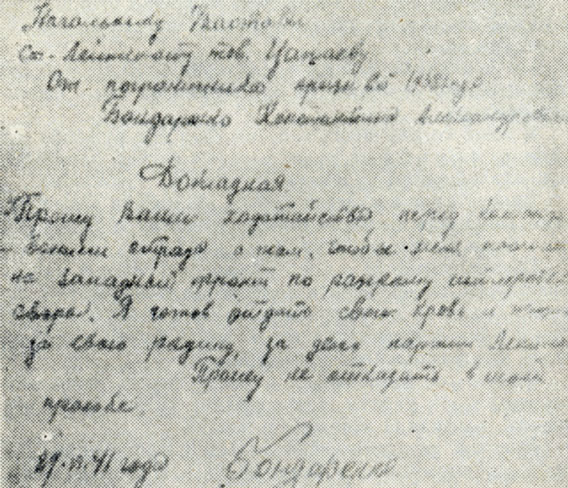 Начальнику Заставы
ст. Лейтенанту тов. Цапаеву
От пограничника призыва 1938 года
Бондаренко Константина Александрович
Докладная
Прошу Вашего ходатайства перед
отряда о том, чтобы меня
на Западный фронт по разгрому
своры. Я готов отдать свою кровь и
за свою родину, за дело партии Ленина
Прошу не отказать в моей
просьбе.
41 года Бондаренко